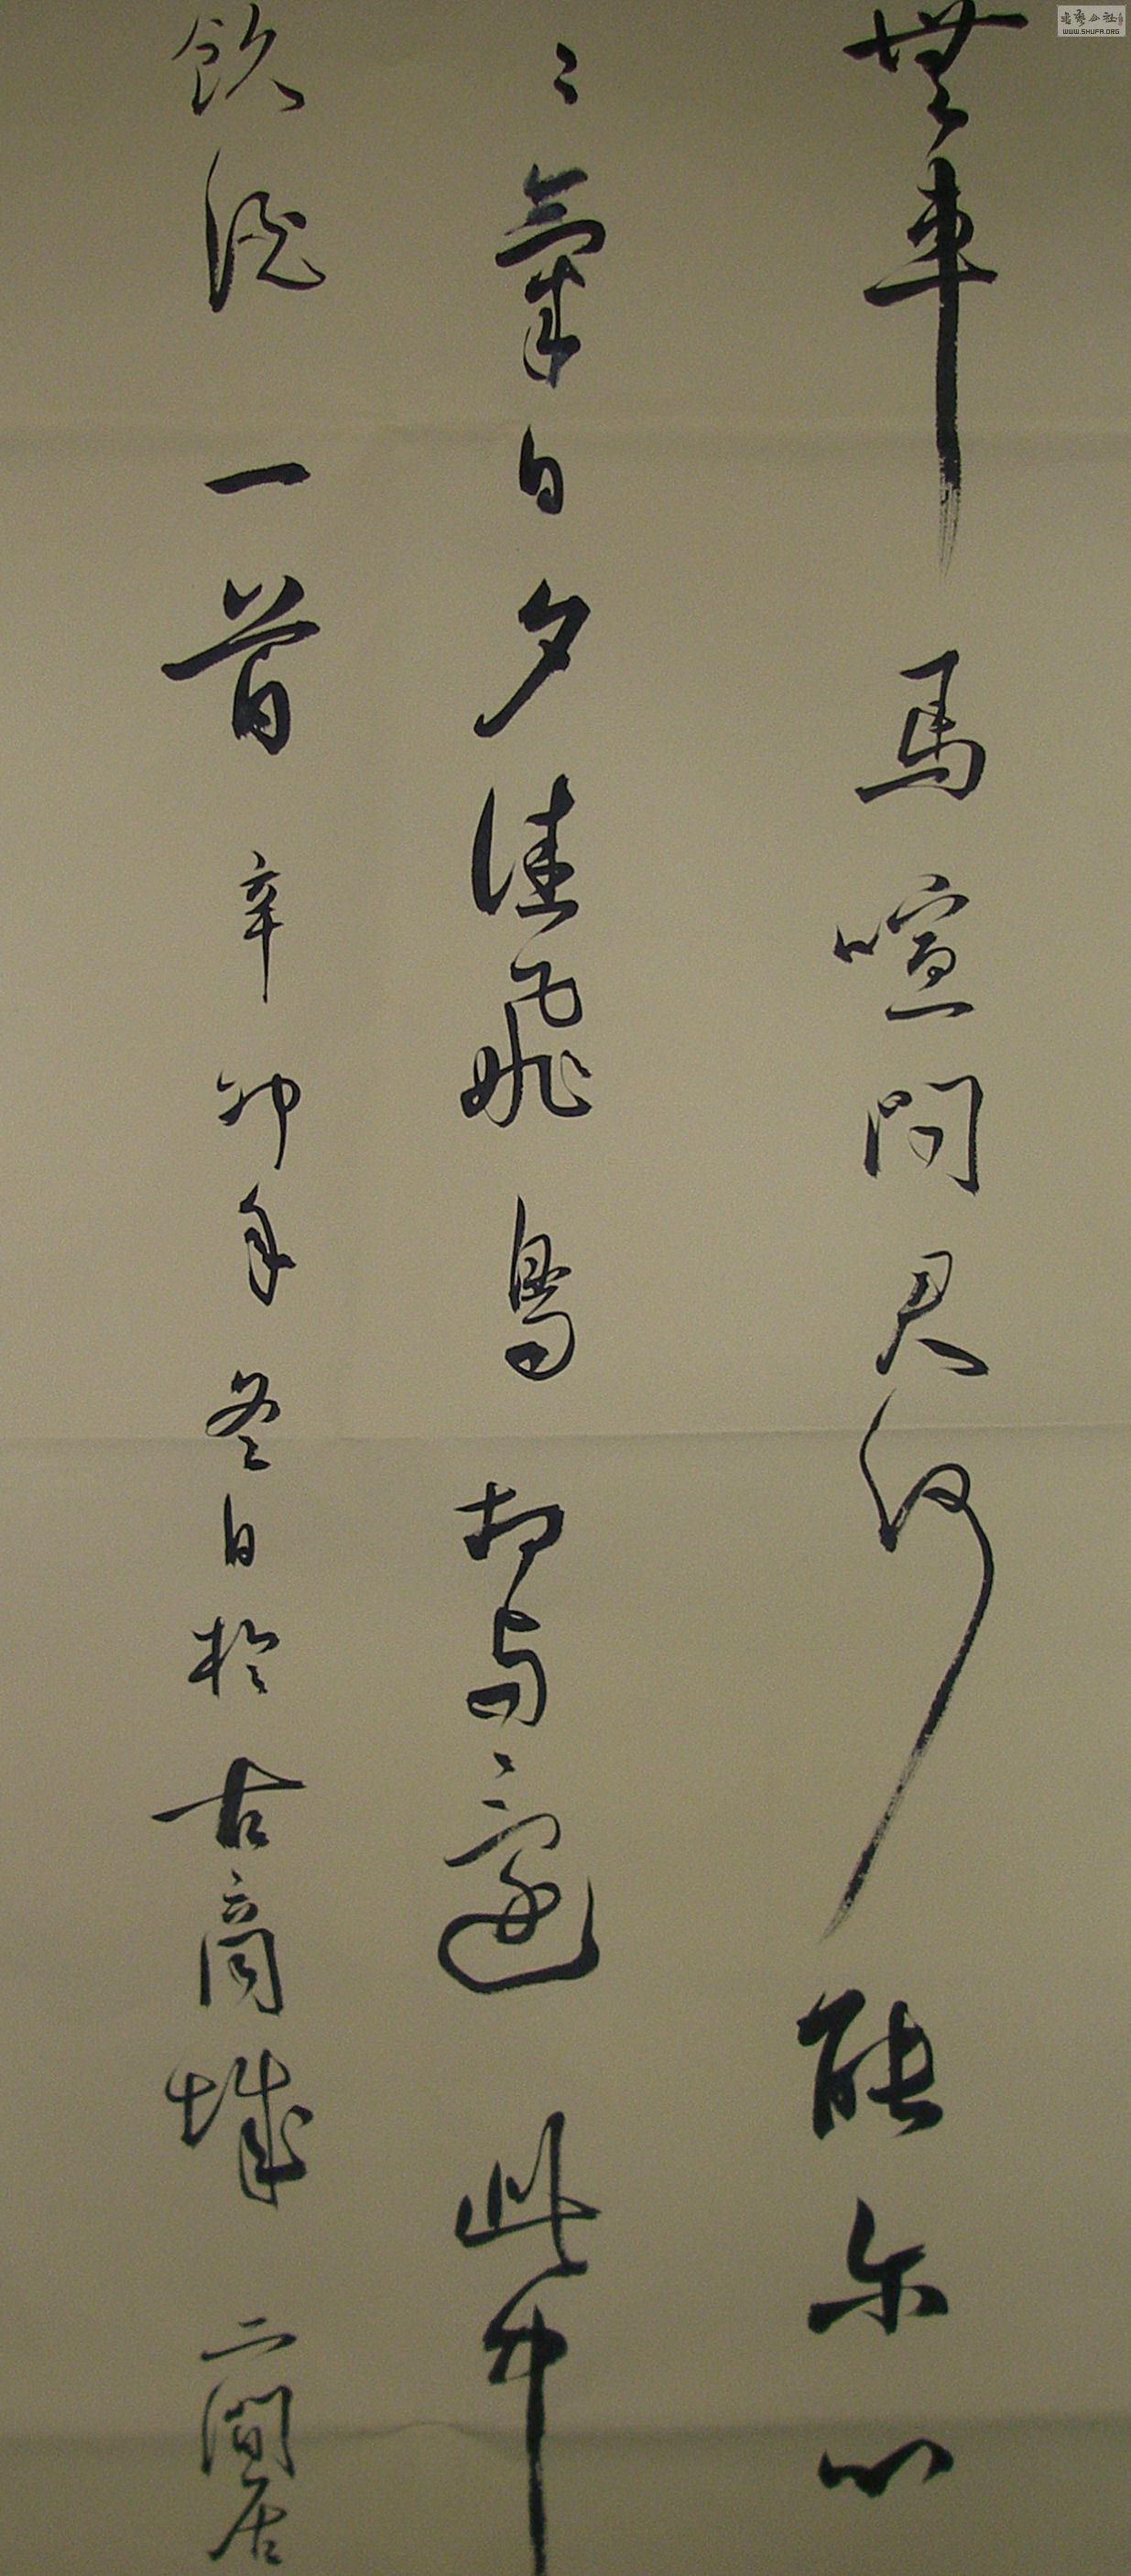 無車馬喧問君何能尔心
〻氣日夕佳飛鳥相与〻還此中
飲酒一首辛卯年冬日於古商城二澗居
WWW.SHUFA.ORG